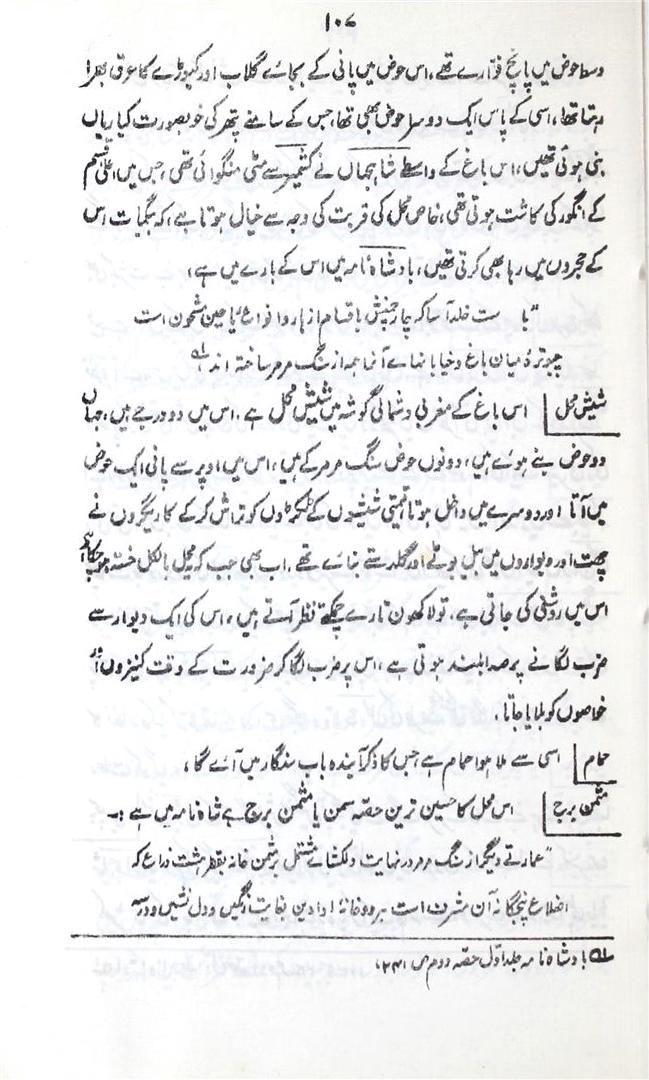 ۱۰۷
وسط حوض میں پانچ فوارے تھے، اس حوض میں پانی کے بجائے گلاب اور کیوڑے کا عرق بھرا
رہتا تھا، اسی کے پاس ایک دوسرا حوض بھی تھا، جس کے سامنے پتھر کی خوبصورت کیاریاں
بنی ہوئی تھیں، اس باغ کے واسطے شاہجہاں نے کشمیر سے مٹی منگوائی تھی، جس میں اعلیٰ قسم
کے انگور کی کاشت ہوتی تھی، خاص محل کی قربت کی وجہ سے خیال ہوتا ہے، کہ بیگمات اس
کے حجروں میں رہا بھی کرتی تھیں، بادشاہ نامہ میں اس کے بارے میں ہے،
"با ست خلد آسا کہ چار چمنش باقسام ازہار و انواع ریاحین مشحون است
چبوترۂ میان باغ و خیابانہاے آنرا ہمہ از سنگ مرمر ساختہ اند" لہ
شیش محل اس باغ کے مغربی و شمالی گوشہ میں شیش محل ہے، اس میں دو درجے ہیں، جہاں
دو حوض بنے ہوئے ہیں، دونوں حوض سنگ مرمر کے ہیں، اس میں اوپر سے پانی ایک حوض
میں آتا اور دوسرے میں داخل ہوتا قیمتی شیشوں کے ٹکڑوں کو تراش کر کے کاریگروں نے
چھت اور دیواروں میں بیل بوٹے اور گلدستے بنائے تھے، اب بھی جب کہ یہ محل بالکل خستہ ہو چکا ہے
اس میں روشنی کی جاتی ہے، تو لاکھوں تارے چمکتے نظر آتے ہیں، اس کی ایک دیوار سے
ضرب لگانے پر صدا بلند ہوتی ہے، اس پر ضرب لگا کر ضرورت کے وقت کنیزوں اور
خواصوں کو بلایا جاتا،
حمام اسی سے ملا ہوا حمام ہے جس کا ذکر آیندہ باب سنگار میں آئے گا،
مثمن برج اس محل کا حسین ترین حصہ سمن یا مثمن برج ہے شاہ نامہ میں ہے :-
"عمارتے دیگر از سنگ مرمر در نہایت دلکشاے مشتمل برثمن خانہ بقطر ہشت ذراع کہ
اضلاع پنجگانہ آن مشرف است بردوخانہ او ادین بغایت رنگین و دل نشین و در سہ
لہ بادشاہ نامہ جلد اول حصہ دوم ص ۲۴۱،